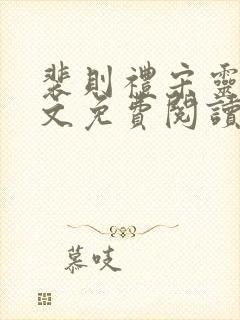 裴則禮宋靈
文免費閱讀
慕吱